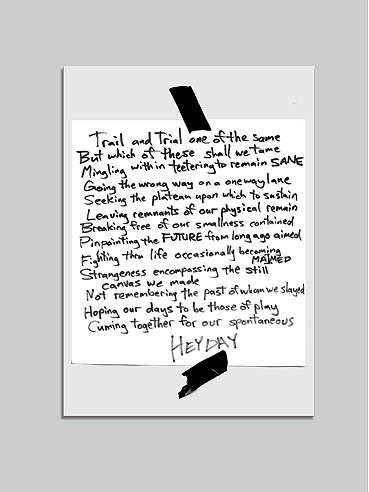 Trail and Trial one of the same
But which of these shall we tame
Mingling within teetering to remain SANE
Going the wrong way on a one way lane
Seeking the plateau upon which to sustain
Leaving remnants of our physical remain
Breaking free of our smallness contained
Pinpointing the FUTURE from long ago aimed
Fighting thru life occasionally becoming
MAIMED
Strangeness encompassing the still
canvas we made
Not remembering the past of whom we slayed
Hoping our days to be those of play
Cuming together for our spontaneous
HEYDAY